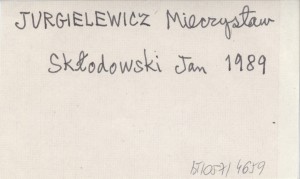 JURGIELEWICZ Mieczysław
Skłodowski Jan 1989
/4659